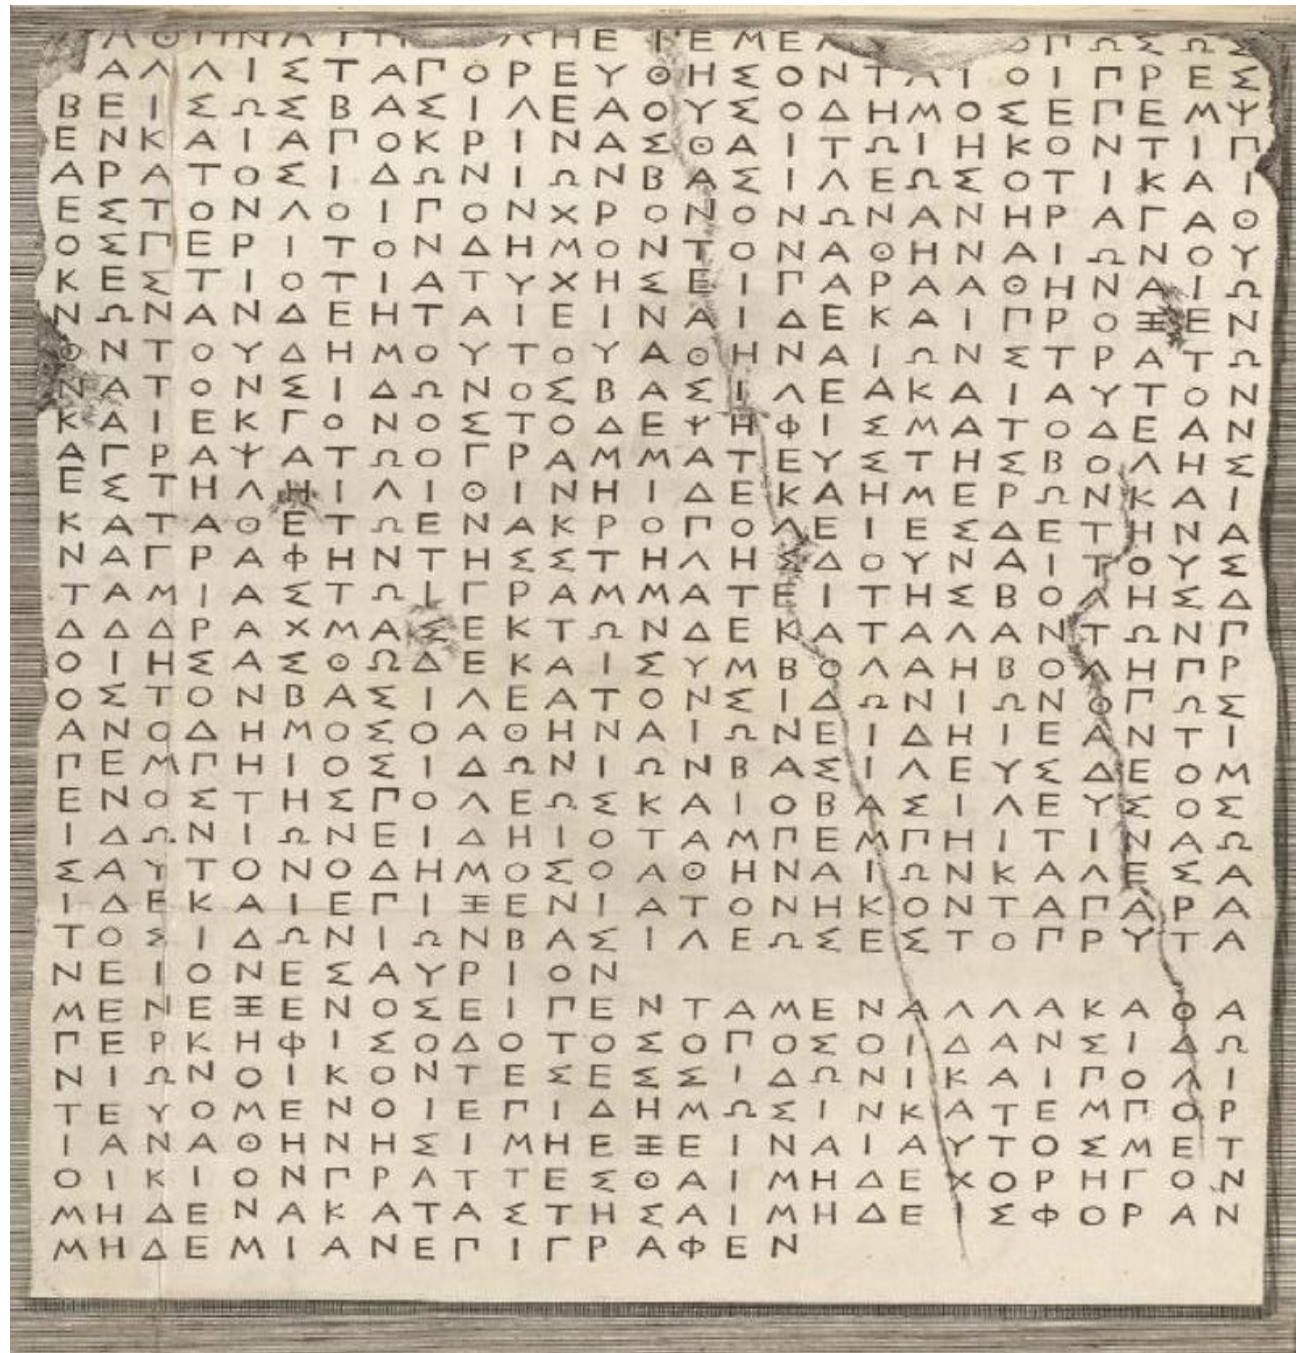 ΑΘΗΝΑ ΗΕΠΕΜΕ ΟΠΩΣΩΣ
ΑΛΛΙΣΤΑΠΟΡΕΥΘΗΣΟΝΤΑΙΟΙΠΡΕΣ
ΒΕΙΣΩΣΒΑΣΙΛΕΑΟΥΣΟΔΗΜΟΣΕΠΕΜΨ
ΕΝΚΑΙΑΠΟΚΡΙΝΑΣΘΑΙΤΩΙΗΚΟΝΤΙΠ
ΑΡΑΤΟΣΙΔΩΝΙΩΝΒΑΣΙΛΕΩΣΟΤΙΚΑΙ
ΕΣΤΟΝΛΟΙΠΟΝΧΡΟΝΟΝΩΝΑΝΗΡΑΓΑΘ
ΟΣΠΕΡΙΤΟΝΔΗΜΟΝΤΟΝΑΘΗΝΑΙΩΝΟΥ
ΚΕΣΤΙΟΤΙΑΤΥΧΗΣΕΙΠΑΡΑΑΘΗΝΑΙΩ
ΝΩΝΑΝΔΕΗΤΑΙΕΙΝΑΙΔΕΚΑΙΠΡΟΞΕΝ
ΟΝΤΟΥΔΗΜΟΥΤΟΥΑΘΗΝΑΙΩΝΣΤΡΑΤΩ
ΝΑΤΟΝΣΙΔΩΝΟΣΒΑΣΙΛΕΑΚΑΙΑΥΤΟΝ
ΚΑΙΕΚΓΟΝΟΣΤΟΔΕΨΗΦΙΣΜΑΤΟΔΕΑΝ
ΑΓΡΑΨΑΤΩΟΓΡΑΜΜΑΤΕΥΣΤΗΣΒΟΛΗΣ
ΕΣΤΗΛΗΙΛΙΘΙΝΗΙΔΕΚΑΗΜΕΡΩΝΚΑΙ
ΚΑΤΑΘΕΤΩΕΝΑΚΡΟΠΟΛΕΙΕΣΔΕΤΗΝΑ
ΝΑΓΡΑΦΗΝΤΗΣΣΤΗΛΗΣΔΟΥΝΑΙΤΟΥΣ
ΤΑΜΙΑΣΤΩΙΓΡΑΜΜΑΤΕΙΤΗΣΒΟΛΗΣΔ
ΔΔΔΡΑΧΜΑΣΕΚΤΩΝΔΕΚΑΤΑΛΑΝΤΩΝΠ
ΟΙΗΣΑΣΘΩΔΕΚΑΙΣΥΜΒΟΛΑΗΒΟΛΗΠΡ
ΟΣΤΟΝΒΑΣΙΛΕΑΤΟΝΣΙΔΩΝΙΩΝΟΠΩΣ
ΑΝΟΔΗΜΟΣΟΑΘΗΝΑΙΩΝΕΙΔΗΙΕΑΝΤΙ
ΠΕΜΠΗΙΟΣΙΔΩΝΙΩΝΒΑΣΙΛΕΥΣΔΕΟΜ
ΕΝΟΣΤΗΣΠΟΛΕΩΣΚΑΙΟΒΑΣΙΛΕΥΣΟΣ
ΙΔΩΝΙΩΝΕΙΔΗΙΟΤΑΜΠΕΜΠΗΙΤΙΝΑΩ
ΣΑΥΤΟΝΟΔΗΜΟΣΟΑΘΗΝΑΙΩΝΚΑΛΕΣΑ
ΙΔΕΚΑΙΕΠΙΞΕΝΙΑΤΟΝΗΚΟΝΤΑΠΑΡΑ
ΤΟΣΙΔΩΝΙΩΝΒΑΣΙΛΕΩΣΕΣΤΟΠΡΥΤΑ
ΝΕΙΟΝΕΣΑΥΡΙΟΝ
ΜΕΝΕΞΕΝΟΣΕΙΠΕΝΤΑΜΕΝΑΛΛΑΚΑΘΑ
ΠΕΡΚΗΦΙΣΟΔΟΤΟΣΟΠΟΣΟΙΔΑΝΣΙΔΩ
ΝΙΩΝΟΙΚΟΝΤΕΣΕΣΣΙΔΩΝΙΚΑΙΠΟΛΙ
ΤΕΥΟΜΕΝΟΙΕΠΙΔΗΜΩΣΙΝΚΑΤΕΜΠΟΡ
ΙΑΝΑΘΗΝΗΣΙΜΗΕΞΕΙΝΑΙΑΥΤΟΣΜΕΤ
ΟΙΚΙΟΝΠΡΑΤΤΕΣΘΑΙΜΗΔΕΧΟΡΗΓΟΝ
ΜΗΔΕΝΑΚΑΤΑΣΤΗΣΑΙΜΗΔΕΙΣΦΟΡΑΝ
ΜΗΔΕΜΙΑΝΕΠΙΓΡΑΦΕΝ